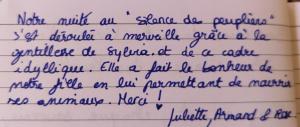 Notre nuité au "silence des peupliers"
s'est déroulée à merveille grâce à la
gentillesse de Sylvia et de ce cadre
idyllique. Elle a fait le bonheur de
notre fille en lui permettant de nourrir
ses animaux. Merci !
Juliette, Armand &